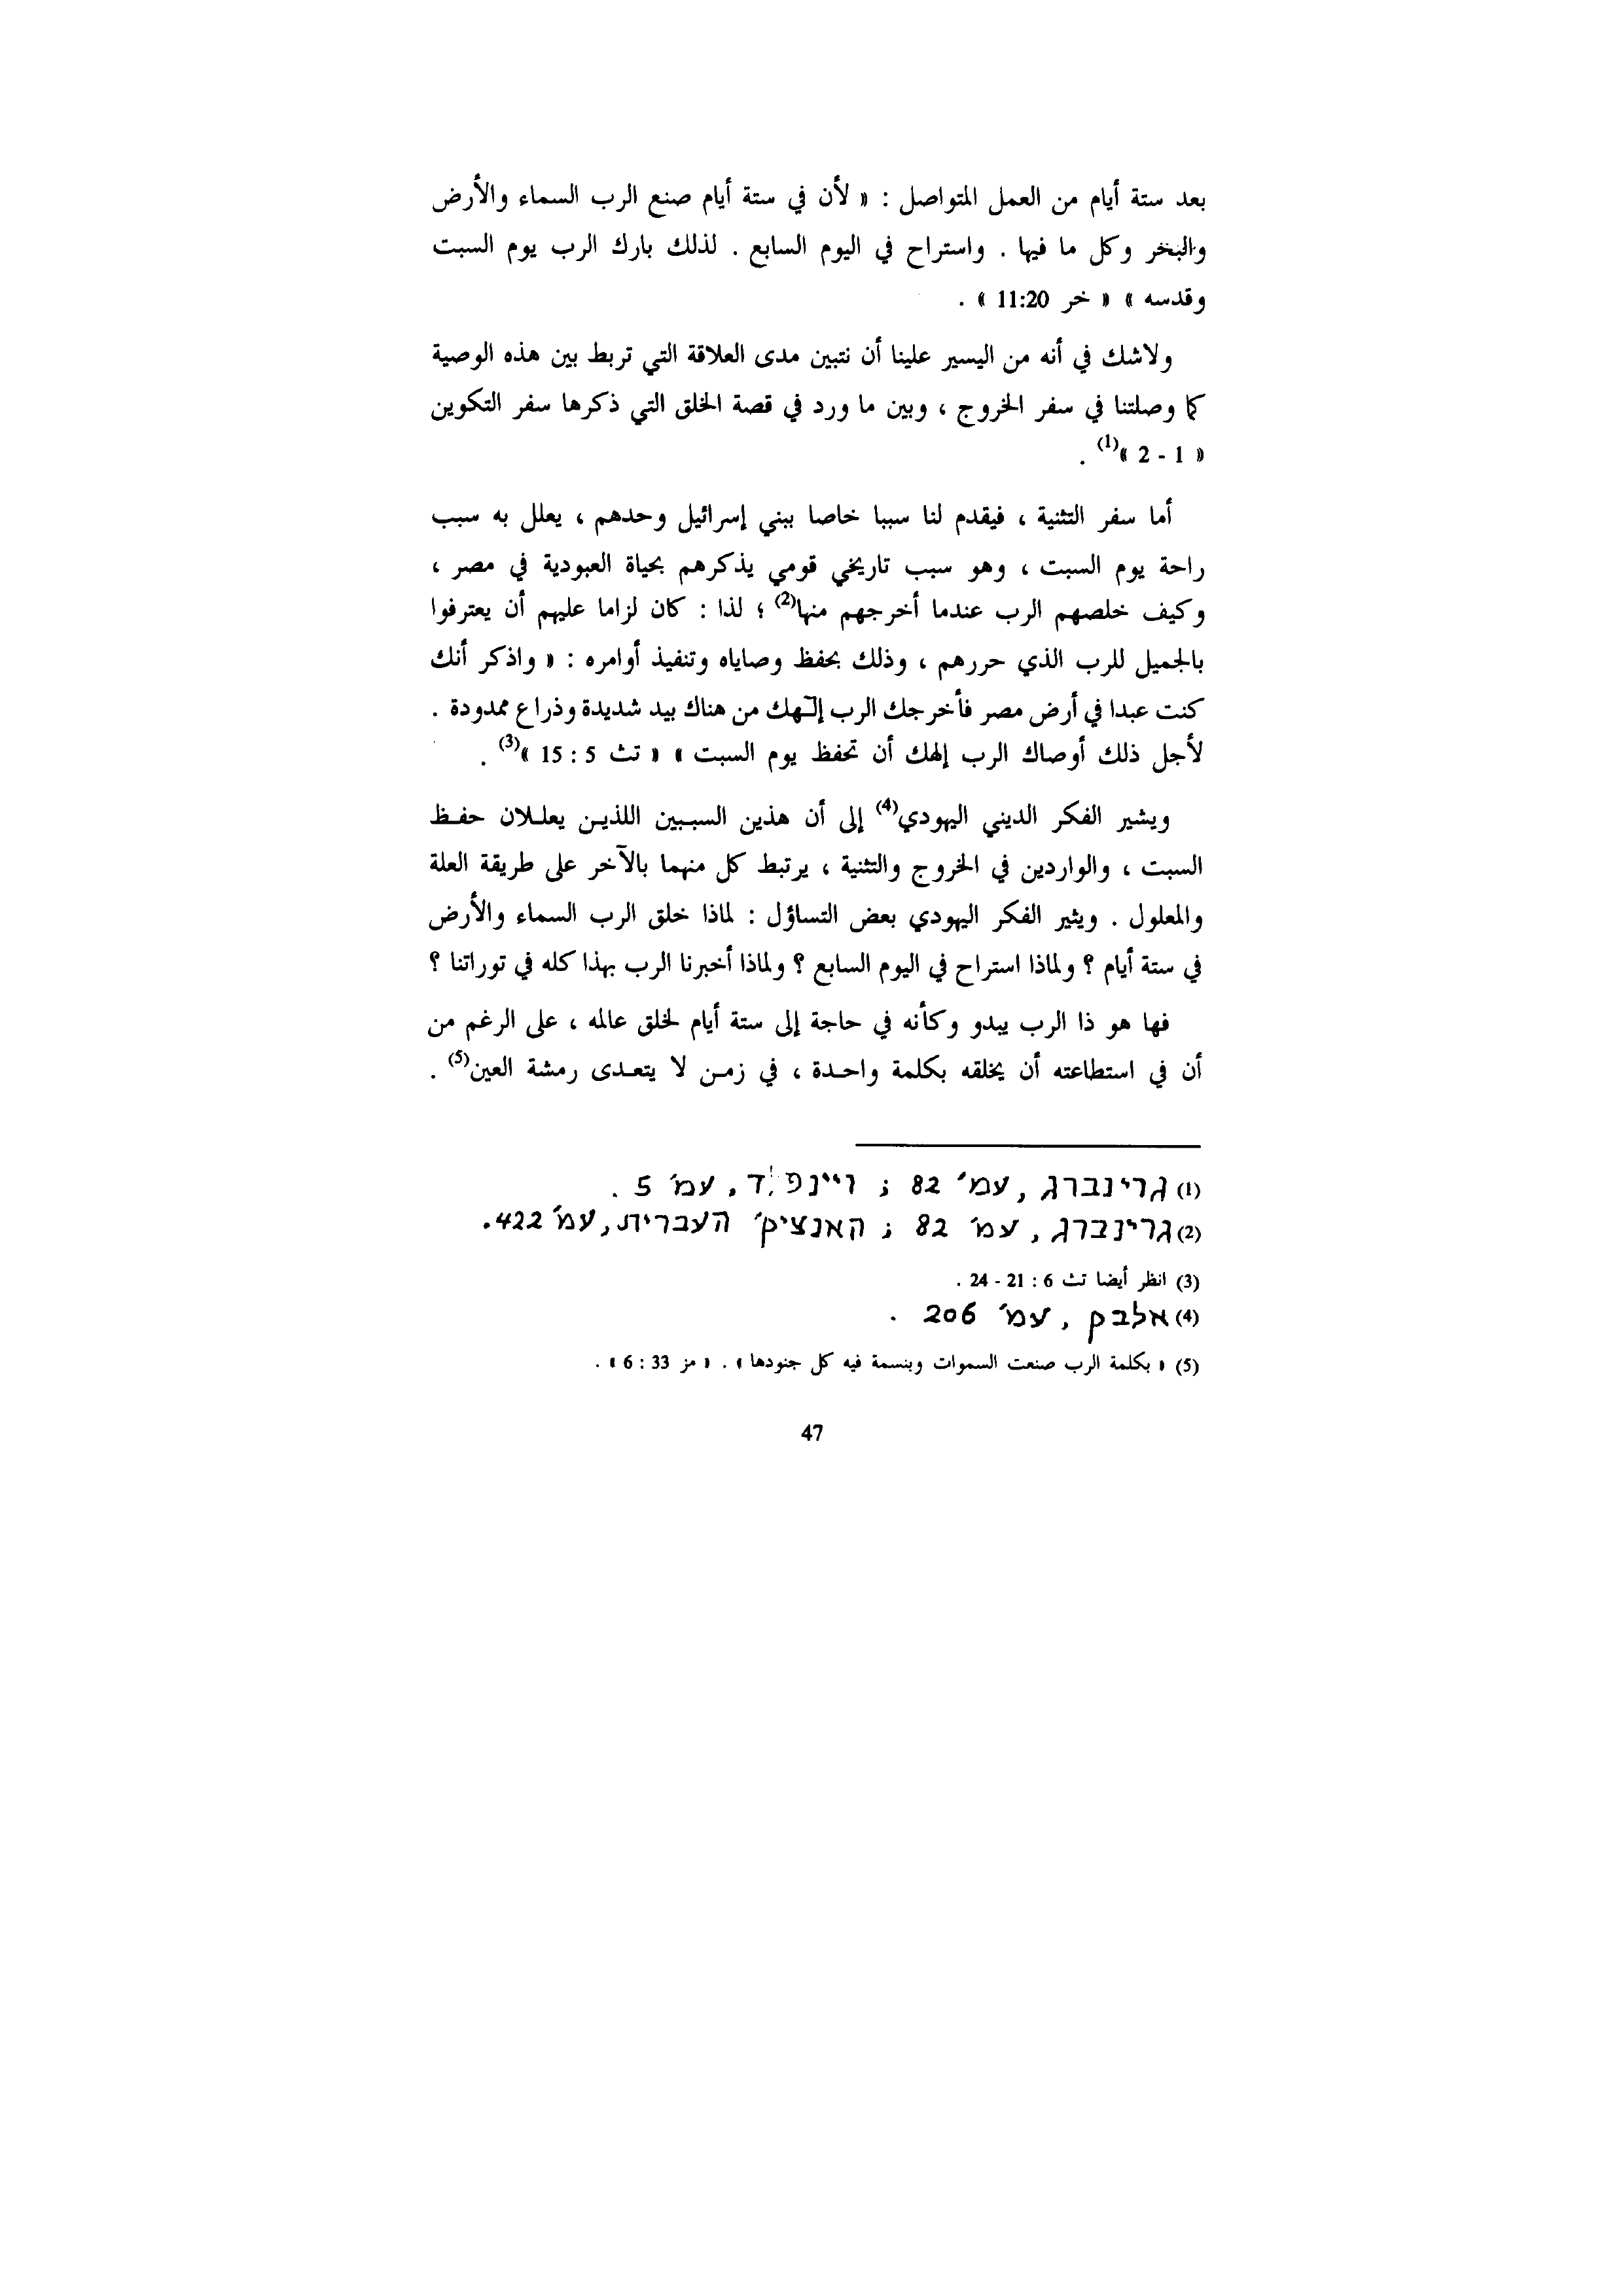 بعد ستة أيام من العمل المتواصل : « لأن في ستة أيام صنع الرب السماء والأرض
والبحر وكل ما فيها . واستراح في اليوم السابع . لذلك بارك الرب يوم السبت
وقدسه » « خر 11:20 » .
ولاشك في أنه من اليسير علينا أن نتبين مدى العلاقة التي تربط بين هذه الوصية
كما وصلتنا في سفر الخروج ، وبين ما ورد في قصة الخلق التي ذكرها سفر التكوين
« 1 - 2 »(1) .
أما سفر التثنية ، فيقدم لنا سببا خاصا ببني إسرائيل وحدهم ، يعلل به سبب
راحة يوم السبت ، وهو سبب تاريخي قومي يذكرهم بحياة العبودية في مصر ،
وكيف خلصهم الرب عندما أخرجهم منها(2) ؛ لذا : كان لزاما عليهم أن يعترفوا
بالجميل للرب الذي حررهم ، وذلك بحفظ وصاياه وتنفيذ أوامره : « واذكر أنك
كنت عبدا في أرض مصر فأخرجك الرب إلـهك من هناك بيد شديدة وذراع ممدودة .
لأجل ذلك أوصاك الرب إلهك أن تحفظ يوم السبت » « تث 5 : 15 »(3) .
ويشير الفكر الديني اليهودي(4) إلى أن هذين السبـبين اللذيـن يعلـلان حفـظ
السبت ، والواردين في الخروج والتثنية ، يرتبط كل منهما بالآخر على طريقة العلة
والمعلول . ويثير الفكر اليهودي بعض التساؤل : لماذا خلق الرب السماء والأرض
في ستة أيام ؟ ولماذا استراح في اليوم السابع ؟ ولماذا أخبرنا الرب بهذا كله في توراتنا ؟
فها هو ذا الرب يبدو وكأنه في حاجة إلى ستة أيام لخلق عالمه ، على الرغم من
أن في استطاعته أن يخلقه بكلمة واحـدة ، في زمـن لا يتعـدى رمشة العين(5) .
(1) גרינברג , עמ׳ 82 ; , עמ׳ 5 .
(2) גרינברג , עמ׳ 82 ; האנציק׳ העברית , עמ׳ 422.
(3) انظر أيضا تث 6 : 21 - 24 .
(4) אלבק , עמ׳ 206 .
(5) « بكلمة الرب صنعت السموات وبنسمة فيه كل جنودها » . « مز 33 : 6 » .
47